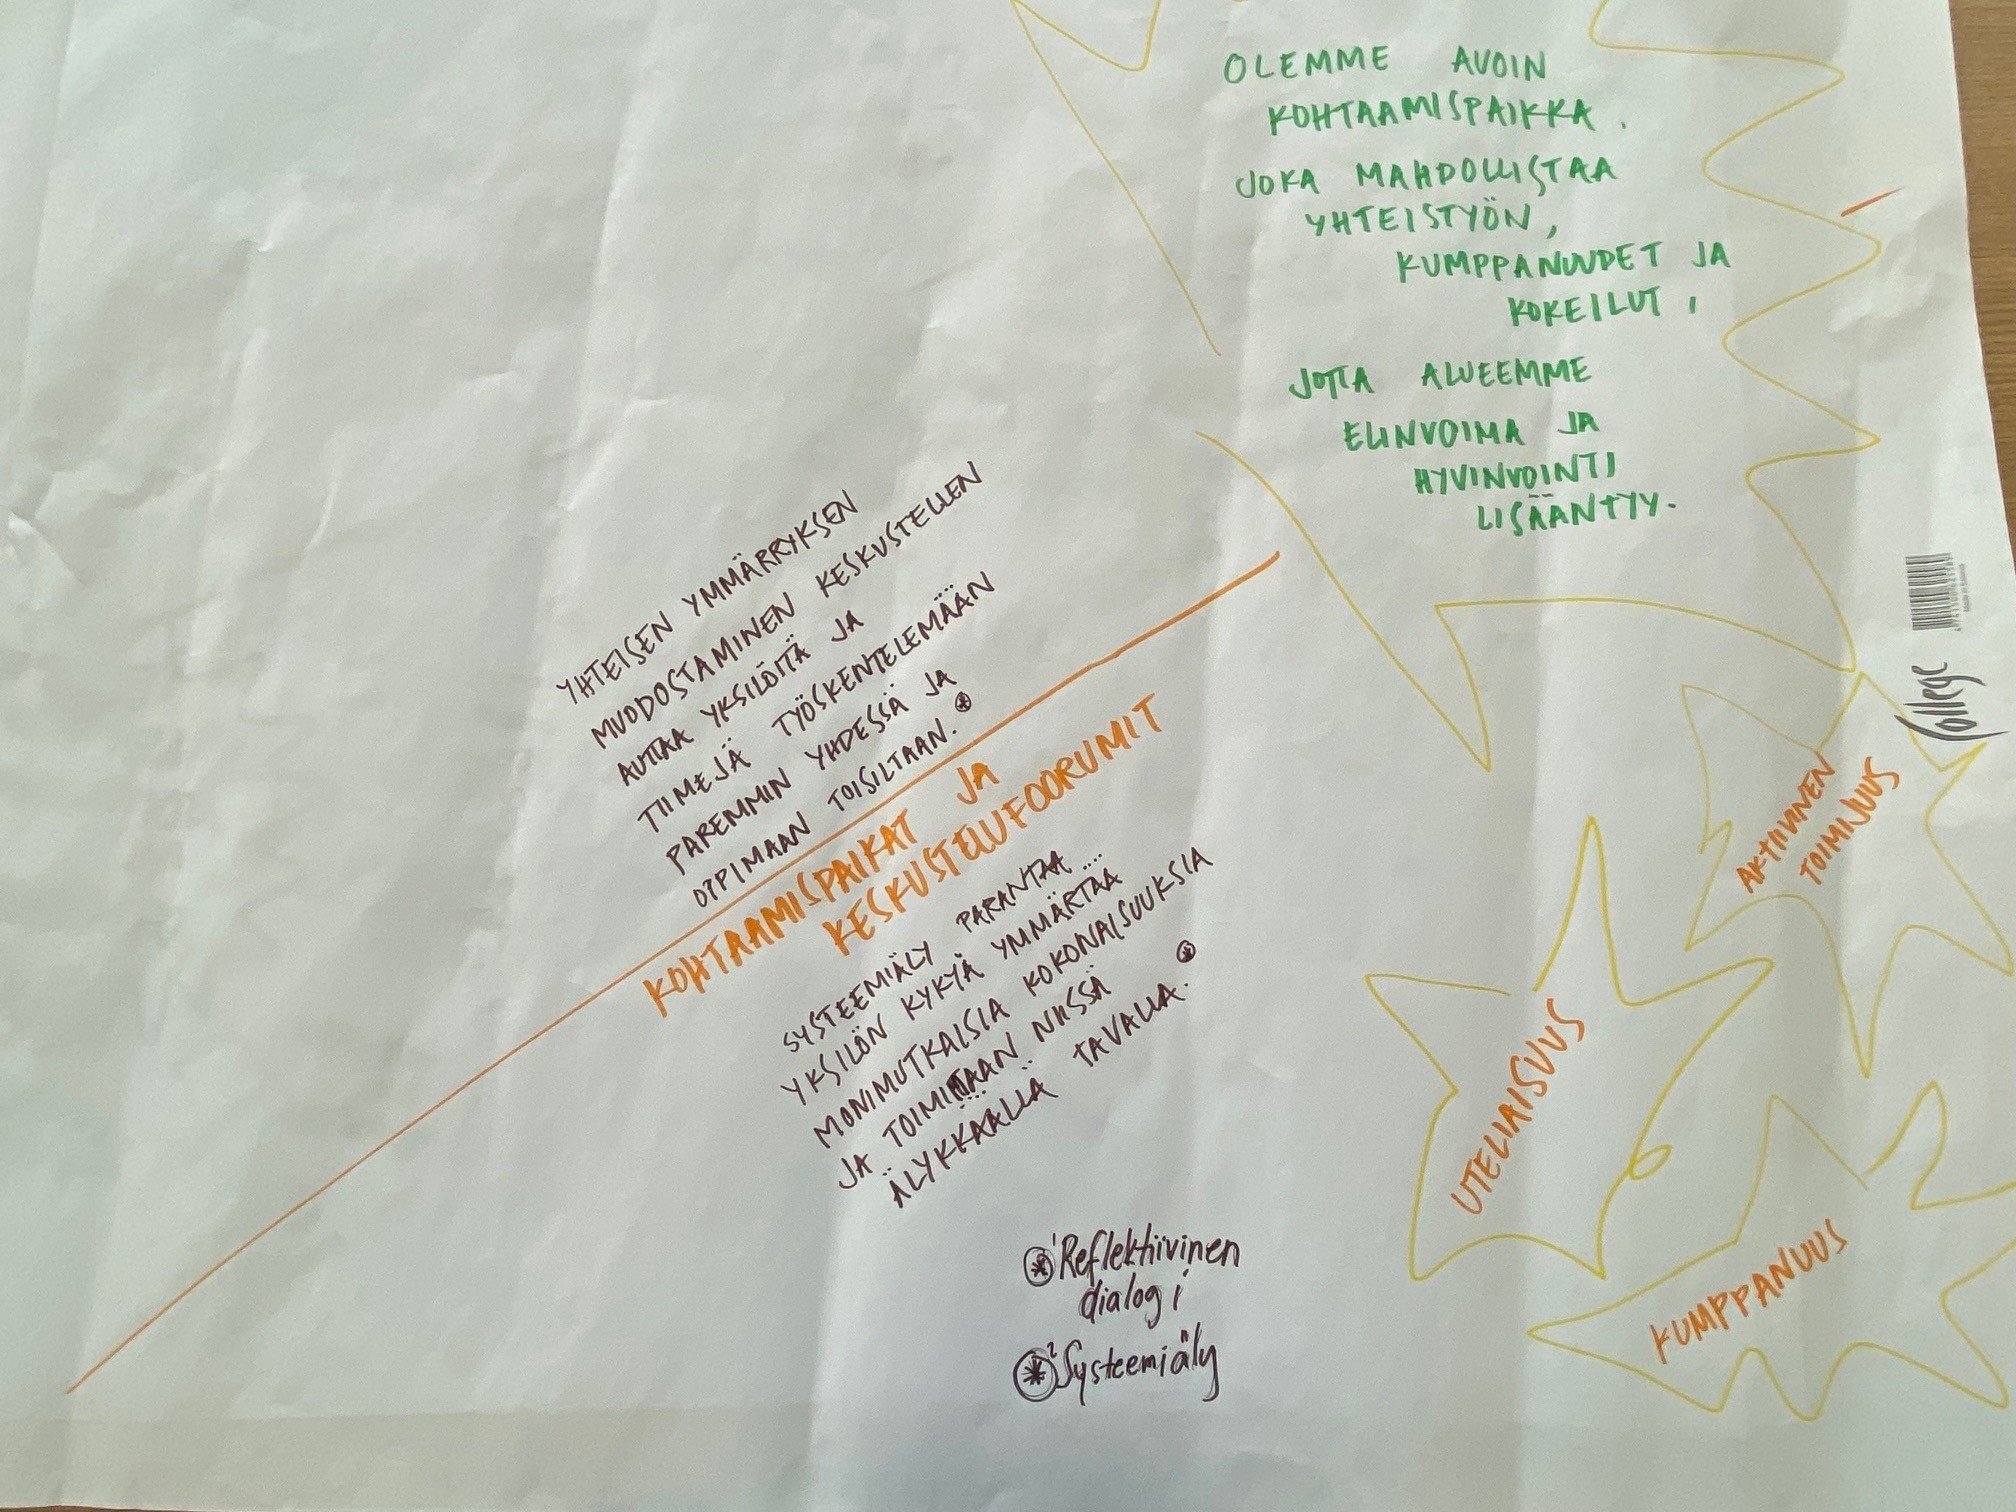 OLEMME AVOIN
KOHTAAMISPAIKKA.
JOKA MAHDOLLISTAA
YHTEISTYÖN,
KUMPPANUUDET JA
KOKEILUT,
JOTTA ALUEEMME
ELINVOIMA JA
HYVINVOINTI
LISÄÄNTYY.
YHTEISEN YMMÄRRYKSEN
MUODOSTAMINEN KESKUSTELLEN
AUTTAA YKSILÖITÄ JA
TIIMEJÄ TYÖSKENTELEMÄÄN
PAREMMIN YHDESSÄ JA
OPPIMAAN TOISILTAAN.
KOHTAAMISPAIKAT JA
KESKUSTELUFOORUMIT
SYSTEEMIÄLY PARANTAA
YKSILÖN KYKYÄ YMMÄRTÄÄ
MONIMUTKAISIA KOKONAISUUKSIA
JA TOIMIMAAN NIISSÄ
ÄLYKKÄÄLLÄ TAVALLA.
*1 Reflektiivinen
dialogi
*2 Systeemiäly
AKTIIVINEN
TOIMIJUUS
UTELIAISUUS
KUMPPANUUS
College